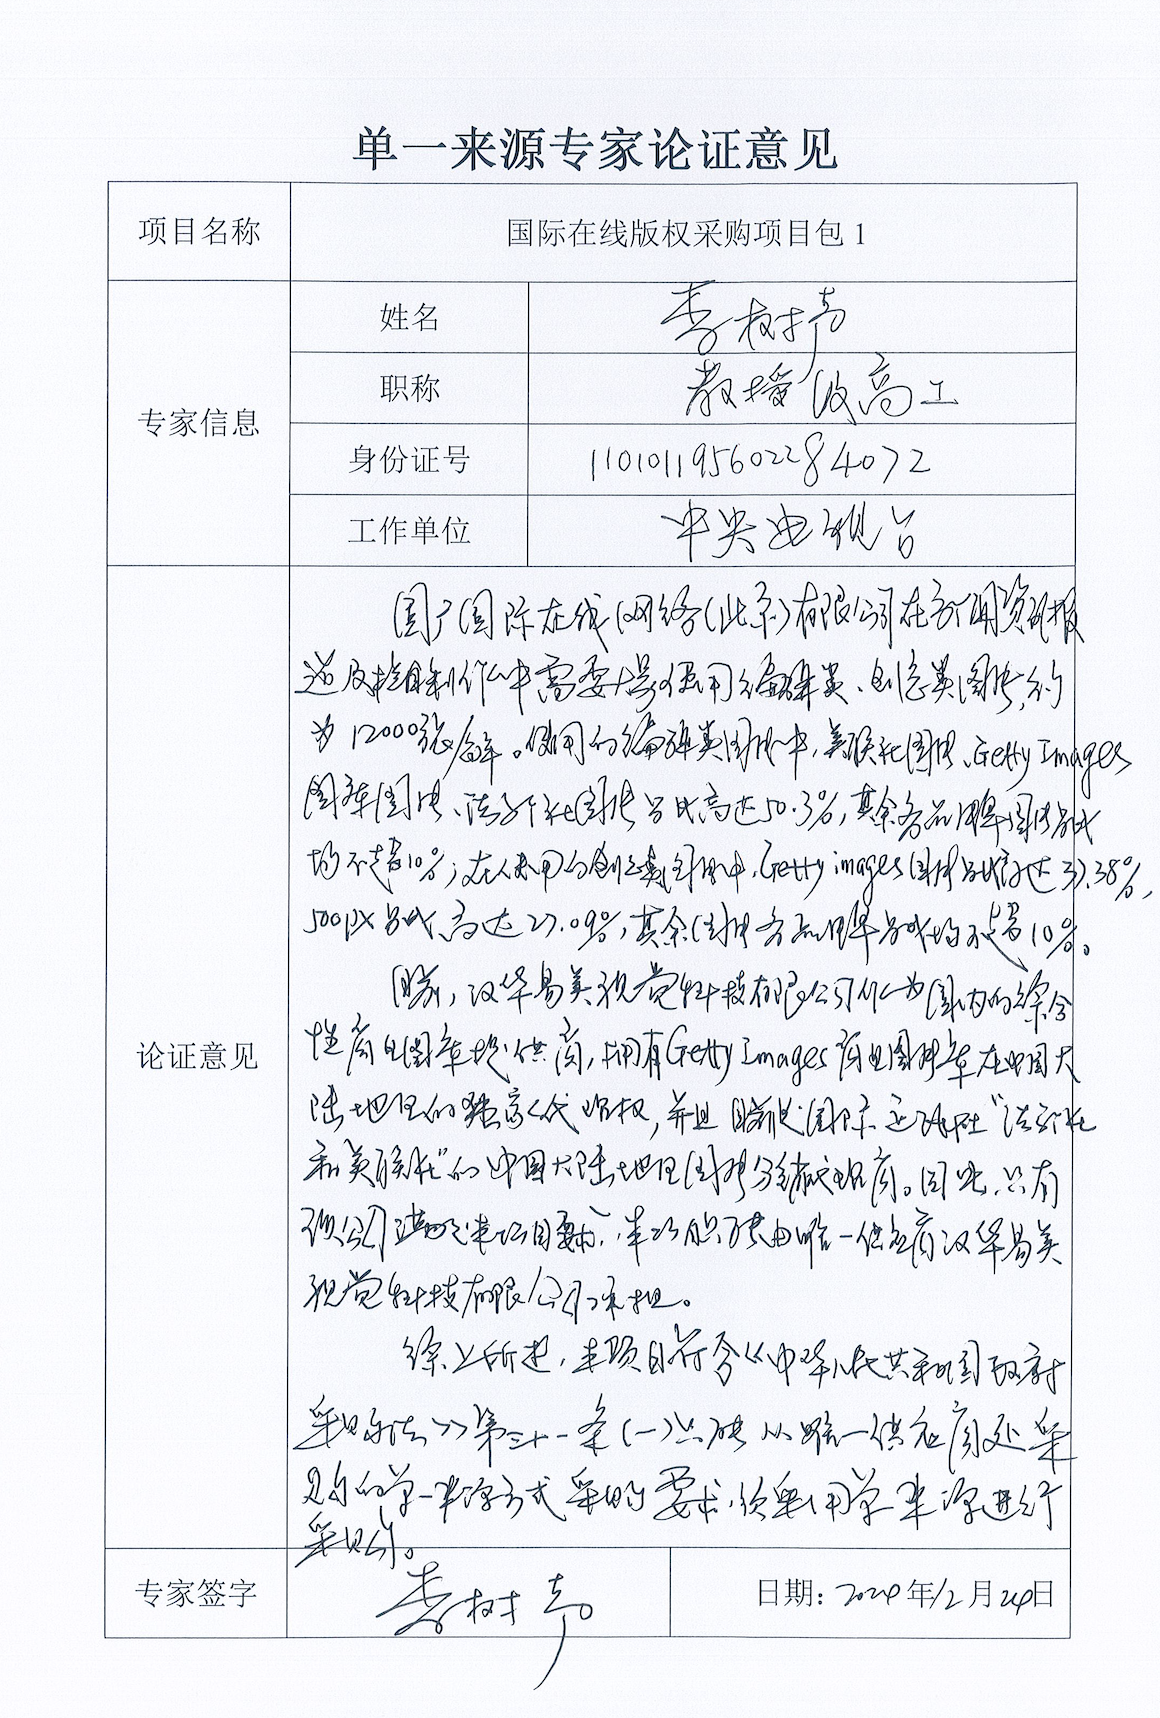 单一来源专家论证意见
项目名称
国际在线版权采购项目包1
专家信息
姓名
李树
职称
教授级高工
身份证号
110101195602284072
工作单位
中央电视台
论证意见
国广国际在线网络(北京)有限公司在新闻资讯报
道及栏目制作中需要大量使用编辑类、创意类图片,约
为12000张/年。使用的编辑类图片中,美联社图片、Getty Images
图库图片、法新社图片占比高达50.3%,其余各品牌图片占比
均不超10%;在使用的创意类图片中,Getty images图片占比高达37.38%,
500px占比高达27.09%,其余图片各品牌占比均不超10%。
目前,汉华易美视觉科技有限公司作为国内的综合
性商业图库提供商,拥有Getty Images商业图片库在中国大
陆地区的独家代理权,并且目前是国际通讯社“法新社
和美联社”的中国大陆地区图片分销代理商。因此,只有
该公司满足本项目要求,本次只能由唯一供应商汉华易美
视觉科技有限公司承担。
综上所述,本项目符合《中华人民共和国政府
采购法》第三十一条(一)只能从唯一供应商处采
购的单一来源方式采购的要求,须采用单一来源进行
采购。
专家签字
李树
日期:2024年12月24日